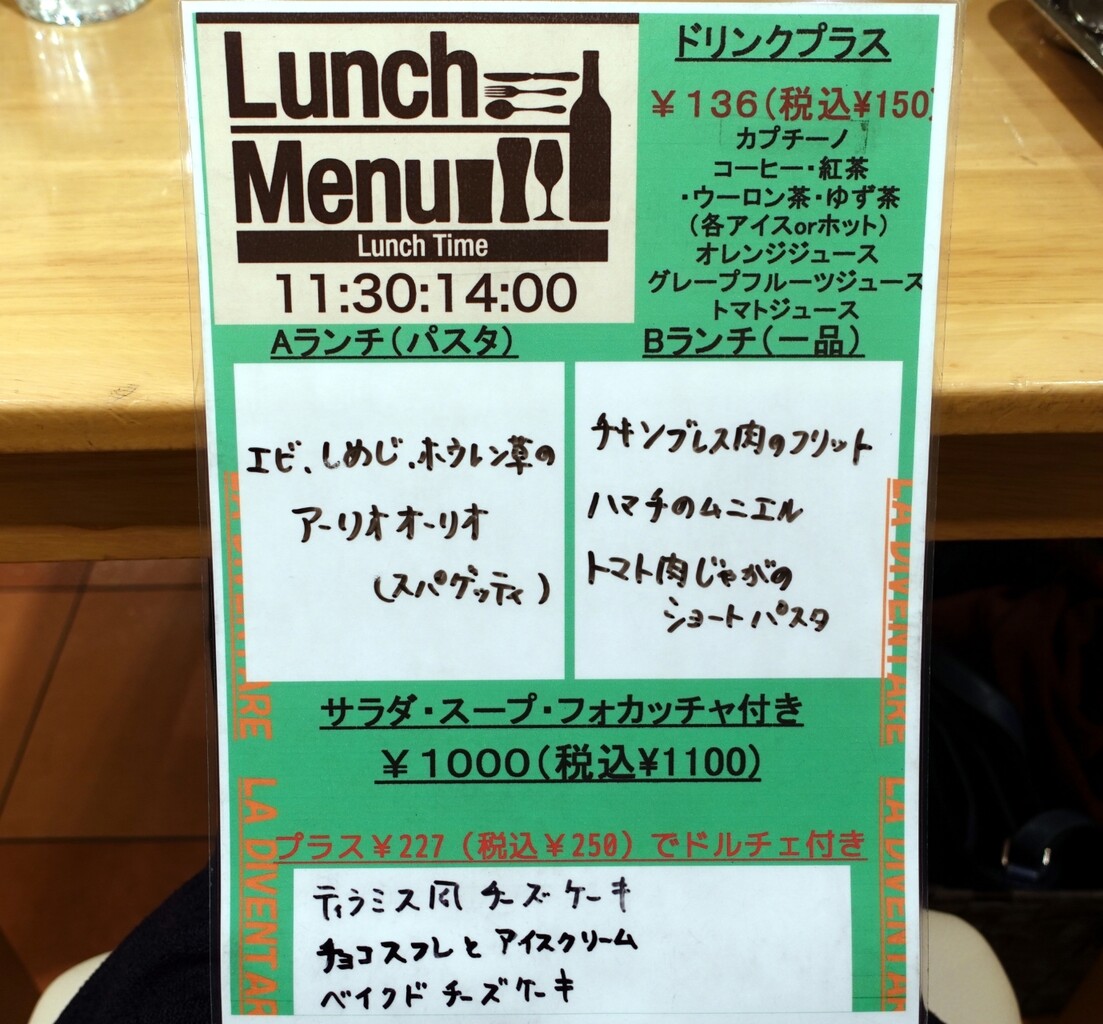 Lunch
Menu
Lunch Time
11:30:14:00
ドリンクプラス
￥136(税込¥150)
カプチーノ
コーヒー・紅茶
・ウーロン茶・ゆず茶
(各アイスorホット)
オレンジジュース
グレープフルーツジュース
トマトジュース
Aランチ(パスタ)
エビ、しめじ、ホウレン草の
アーリオオーリオ
(スパゲッティ)
Bランチ(一品)
チキンブレス肉のフリット
ハマチのムニエル
トマト肉じゃがの
ショートパスタ
サラダ・スープ・フォカッチャ付き
￥1000(税込¥1100)
プラス￥227(税込￥250)でドルチェ付き
ティラミス風チーズケーキ
チョコスフレとアイスクリーム
ベイクドチーズケーキ
LA DIVENTARE
LA DIVENTAR
LA DIVENTARE
LA DIVENTAR